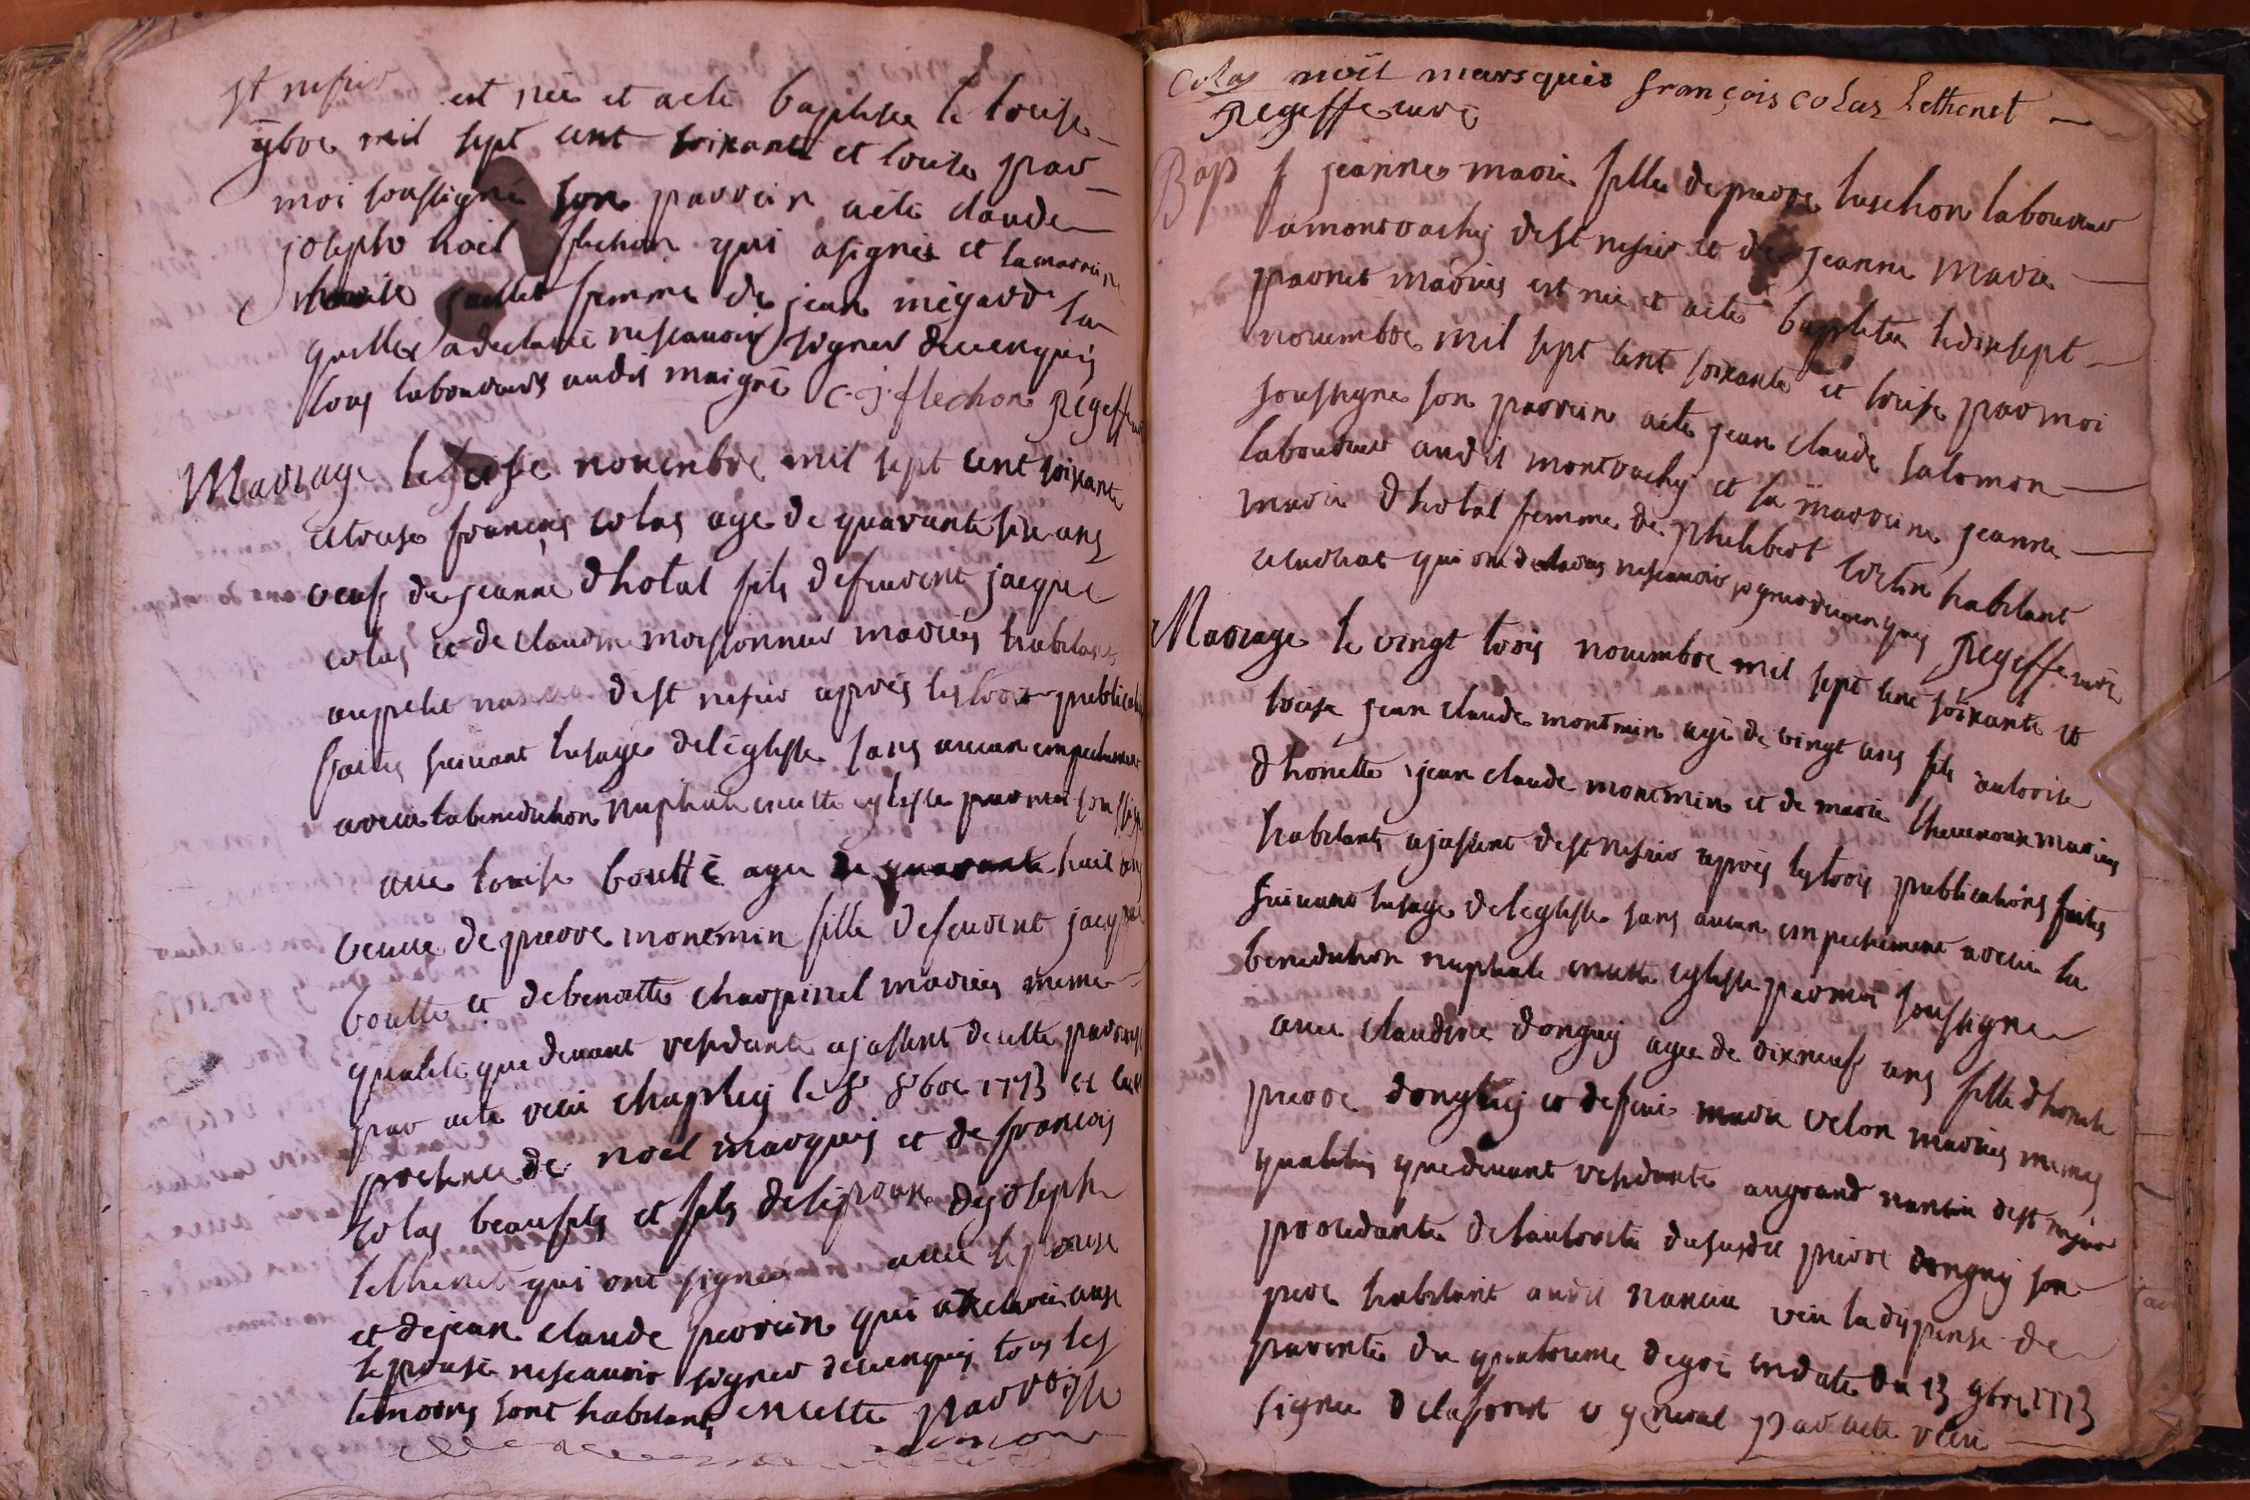 st nesier est née et a eté baptisée le treise
9bre mil sept cent soixante et treise par
moi soussigné son parrein a eté claude
joseph noël flechon qui a signés et la marreine
femme de jean mégard la
quelle a declaré ne scauoir signer de ce enquis
tous laboureurs audit c. j. flechon Regeffe
Mariage le seise nouembre mil sept cent soixante
et treise françois colas age de quarante six ans
veuf de jeanne dhotal fils de feu vent jacque
colas et de claudine moissonnier mariés habitans
au petit dest nesier après les trois publications
faites suiuant lusage de leglisse sans aucun empechement
a receu la benediction nuptiale en cette eglisse par moi soussigné
auec louise boutté agée de quarante huit ans
veuue de pierre montmin fille de feu vent jacque
boutte et de benoitte charpinel mariés meme
qualité que deuant residante ajassent de cette parroisse
par acte receu chapluy le 8bre 1773 et en
presence de noël marquis et de françois
colas beaufils et fils de lepoux de joseph
lethenet qui ont signés auec lepouse
et de jean claude perrein qui a declaré auec
lepouse ne scauoir signer de ce enquis tous les
temoins sont habitans en cette parroisse
colas noël marsquis françois colas lethenet
Regeffe curé
Bap f jeanne marie fille de pierre luschon laboureur
a montrachy dest nesier et de jeanne marie
parret mariés est née et a eté baptisée le dixsept
nouembre mil sept cent soixante et treise par moi
soussigné son parrein a eté jean claude salomon
laboureur audit montrachy et sa marreine jeanne
marie dhotal femme de philibert habitant
qui ont declarés ne scauoir signer de ce enquis Regeffe curé
Mariage le vingt trois nouembre mil sept cent soixante et
treise jean claude montmin agé de vingt ans fils autorisé
dhonette jean claude montmin et de marie theuenoux mariés
habitants ajassent dest nesier après les trois publications faites
suiuant lusage de leglisse sans aucun empechement a receu la
benediction nuptiale en cette eglisse par moi soussigné
auec claudine donguy agée de dixneuf ans fille dhonete
pierre donguy et de feue marie velon mariés memes
qualités que deuant residante au grand nancin dest nesier
procedante de lautorité du susdit pierre donguy son
pere habitant audit nancin veu la dispense de
parenté du quatrieme degré en date du 13 9bre 1773
signée delaforest v general par acte receu